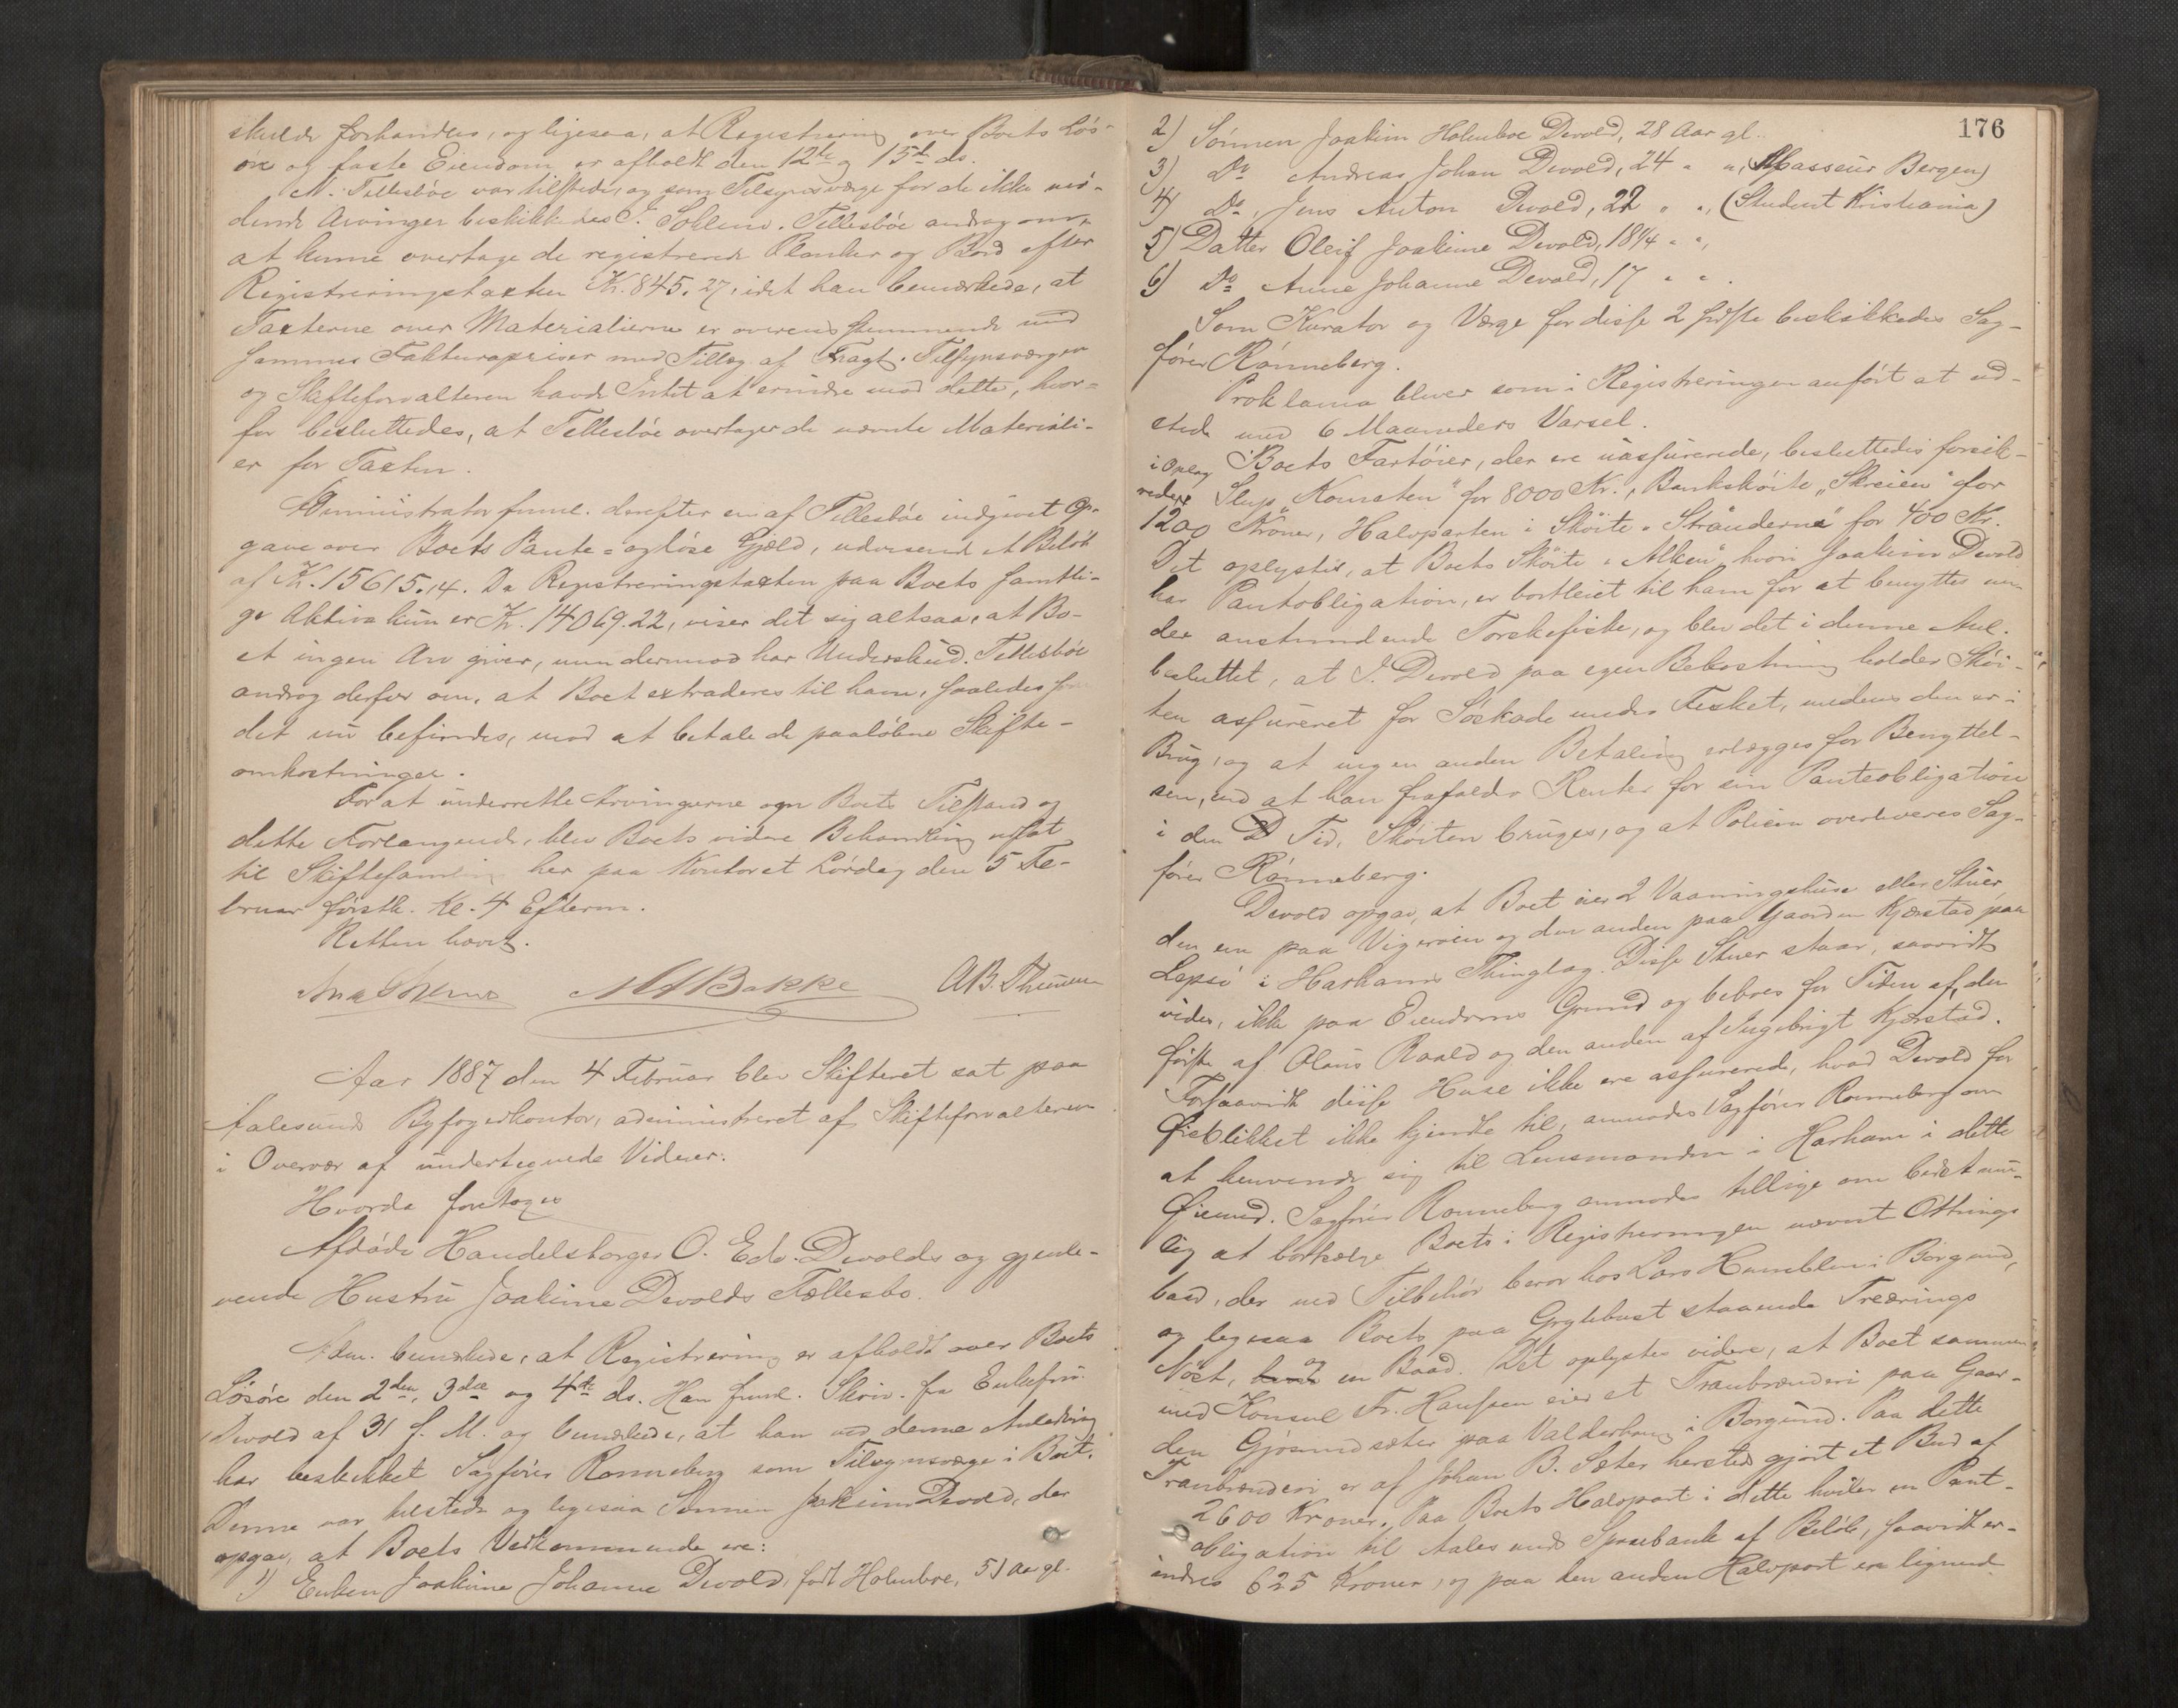 skulde forhandles, og ligesaa, at Registrering over Boets Løs-
øre og faste Eiendom er afholdt den 12te og 15de ds.
N. Tillesbøe var tilstede, og som Tilsynsværge for de ikke mø-
dende Arvinger beskikkedes J. Solem. Tillesbøe androg om,
at kunne overtage de registrerede Planker og Bord efter
Registreringstaxten Kr. 845.27, idet han bemærkede, at
Taxterne over Materialierne er overensstemmende med
sammes Fakturapriser med Tillæg af Fragt. Tilsynsværgen
og Skifteforvalteren havde Intet at erindre mod dette, hvor-
for besluttedes, at Tillesbøe overtager de nævnte Materiali-
er for Taxten.
Administrator freml. derefter en af Tillesbøe indgivet Op-
gave over Boets Pante- og løse Gjæld, udvisende et Beløb
af Kr. 15615.14. Da Registreringstaxten paa Boets samtli-
ge Aktiva kun er Kr. 14069.22, viser det sig altsaa, at Bo-
et ingen Arv giver, men derimod har Underskud. Tillesbøe
androg derfor om, at Boet extraderes til ham, saaledes som
det nu befindes, mod at betale de paaløbne Skifte-
omkostninger.
For at underrette Arvingerne om Boets Tilstand og
dette Forlangende, blev Boets videre Behandling udsat
til Skiftesamling her paa Kontoret Lørdag den 5 Fe-
bruar førstk. Kl. 4 Efterm.
Retten hævet.
MABakke AB. Thunem
Aar 1887 den 4 Februar blev Skifteret sat paa
Aalesunds Byfogedkontor, administreret af Skifteforvalteren
i Overvær af undertegnede Vidner.
Hvorda foretoges
Afdøde Handelsborger O. Edv. Devolds og gjenle-
vende Hustru Joakime Devolds Fællesbo.
Adm. bemærkede, at Registrering er afholdt over Boets
Løsøre den 2den, 3die og 4de ds. Han freml. Skriv. fra Enkefru
Devold af 31 f. M. og bemærkede, at han ved denne Anledning
har beskikket Sagfører Rønneberg som Tilsynsværge i Boet.
Denne var tilstede og ligesaa Sønnen Joakim Devold, der
opgav, at Boets Vedkommende ere:
1) Enken Joakime Johanne Devold, født Holmboe, 51 Aar gl.
176
2) Sønnen Joakim Holmboe Devold, 28 Aar gl.
3) Do Andreas Johan Devold, 24 " ", (Masseur Bergen)
4) Do, Jens Anton Devold, 22 " ", (Student Kristiania)
5) Datter Oleif Joakime Devold, 18 1/4 " ",
6) Do Anne Johanne Devold, 17 " ".
Som Kurator og Værge for disse 2 sidste beskikkedes Sag-
fører Rønneberg.
Proklama bliver som i Registreringen anført at ud-
stede med 6 Maaneders Varsel.
Boets Fartøier, der ere uassurerede, besluttedes forsik-
i Oplag
rede Slup "Komsten" for 8000 Kr., Bankskøite "Skreien" for
1200 Kroner, Halvparten i Skøite "Stränderne" for 400 Kr.
Det oplystes, at Boets Skøite "Alken" hvori Joakim Devold
har Pantobligation, er bortleiet til ham for at benyttes un-
der anstundende Torskefiske, og blev det i denne Anl.
besluttet, at J. Devold paa egen Bekostning holder Skøi-
ten assureret for Søskade under Fisket, medens den er i
Brug, og at ingen anden Betaling erlægges for Benyttel-
sen, end at han frafalder Renter for sin Panteobligation
i den Tid, Skøiten bruges, og at Policen overleveres Sag-
fører Rønneberg.
Devold opgav, at Boet eier 2 Vaaningshuse eller Stuer,
den ene paa Vigerøien og den anden paa Gaarden Kjærstad paa
Lepsø i Harhams Thinglag. Disse Stuer staar, saavidt
vides, ikke paa Eiendoms Grund og bebos for Tiden af, den
første af Olaus Roald og den anden af Ingebrigt Kjærstad.
Forsaavidt disse Huse ikke ere assurerede, hvad Devold for
Øieblikket ikke kjendte til, anmodes Sagfører Rønneberg om
at henvende sig til Lensmanden i Harham i dette
Øiemed. Sagfører Rønneberg anmodes tillige om bedst mu-
lig at bortsælge Boets i Registreringen nævnt Ottrings
baad, der med Tilbehør beror hos Lars Humblen i Borgund,
og ligesaa Boets paa Grytebust staaende Treærings
Nøst, og en Baad. Det oplystes videre, at Boet sammen
med Konsul Fr. Hanssen eier et Tranbrænderi paa Gaar-
den Gjøsundsæter paa Valderhaug i Borgund. Paa dette
Tranbrænderi er af Johan B. Sæter hersteds gjort et Bud af
2600 Kroner. Paa Boets Halvpart i dette hviler en Pant-
obligation til Aalesunds Sparebank af Beløb, saavidt er-
indres 625 Kroner, og paa den anden Halvpart en lignende